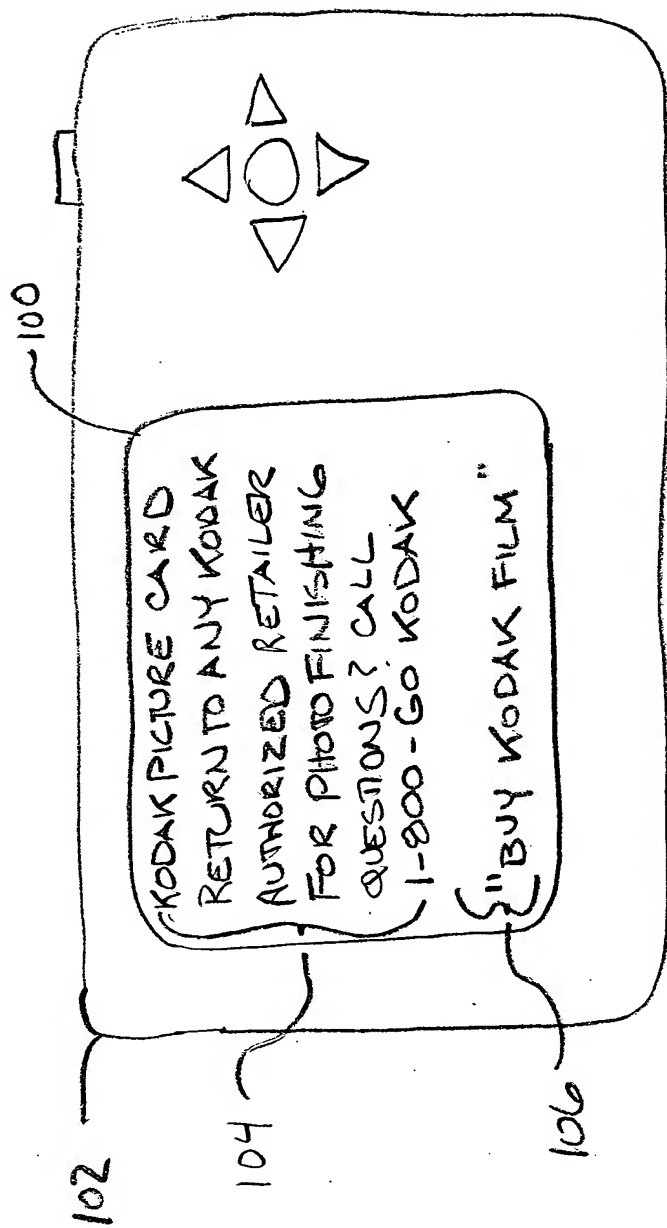 100
102
KODAK PICTURE CARD
RETURN TO ANY KODAK
AUTHORIZED RETAILER
FOR PHOTOFINISHING
QUESTIONS? CALL
1-800-GO KODAK
104
"BUY KODAK FILM"
106